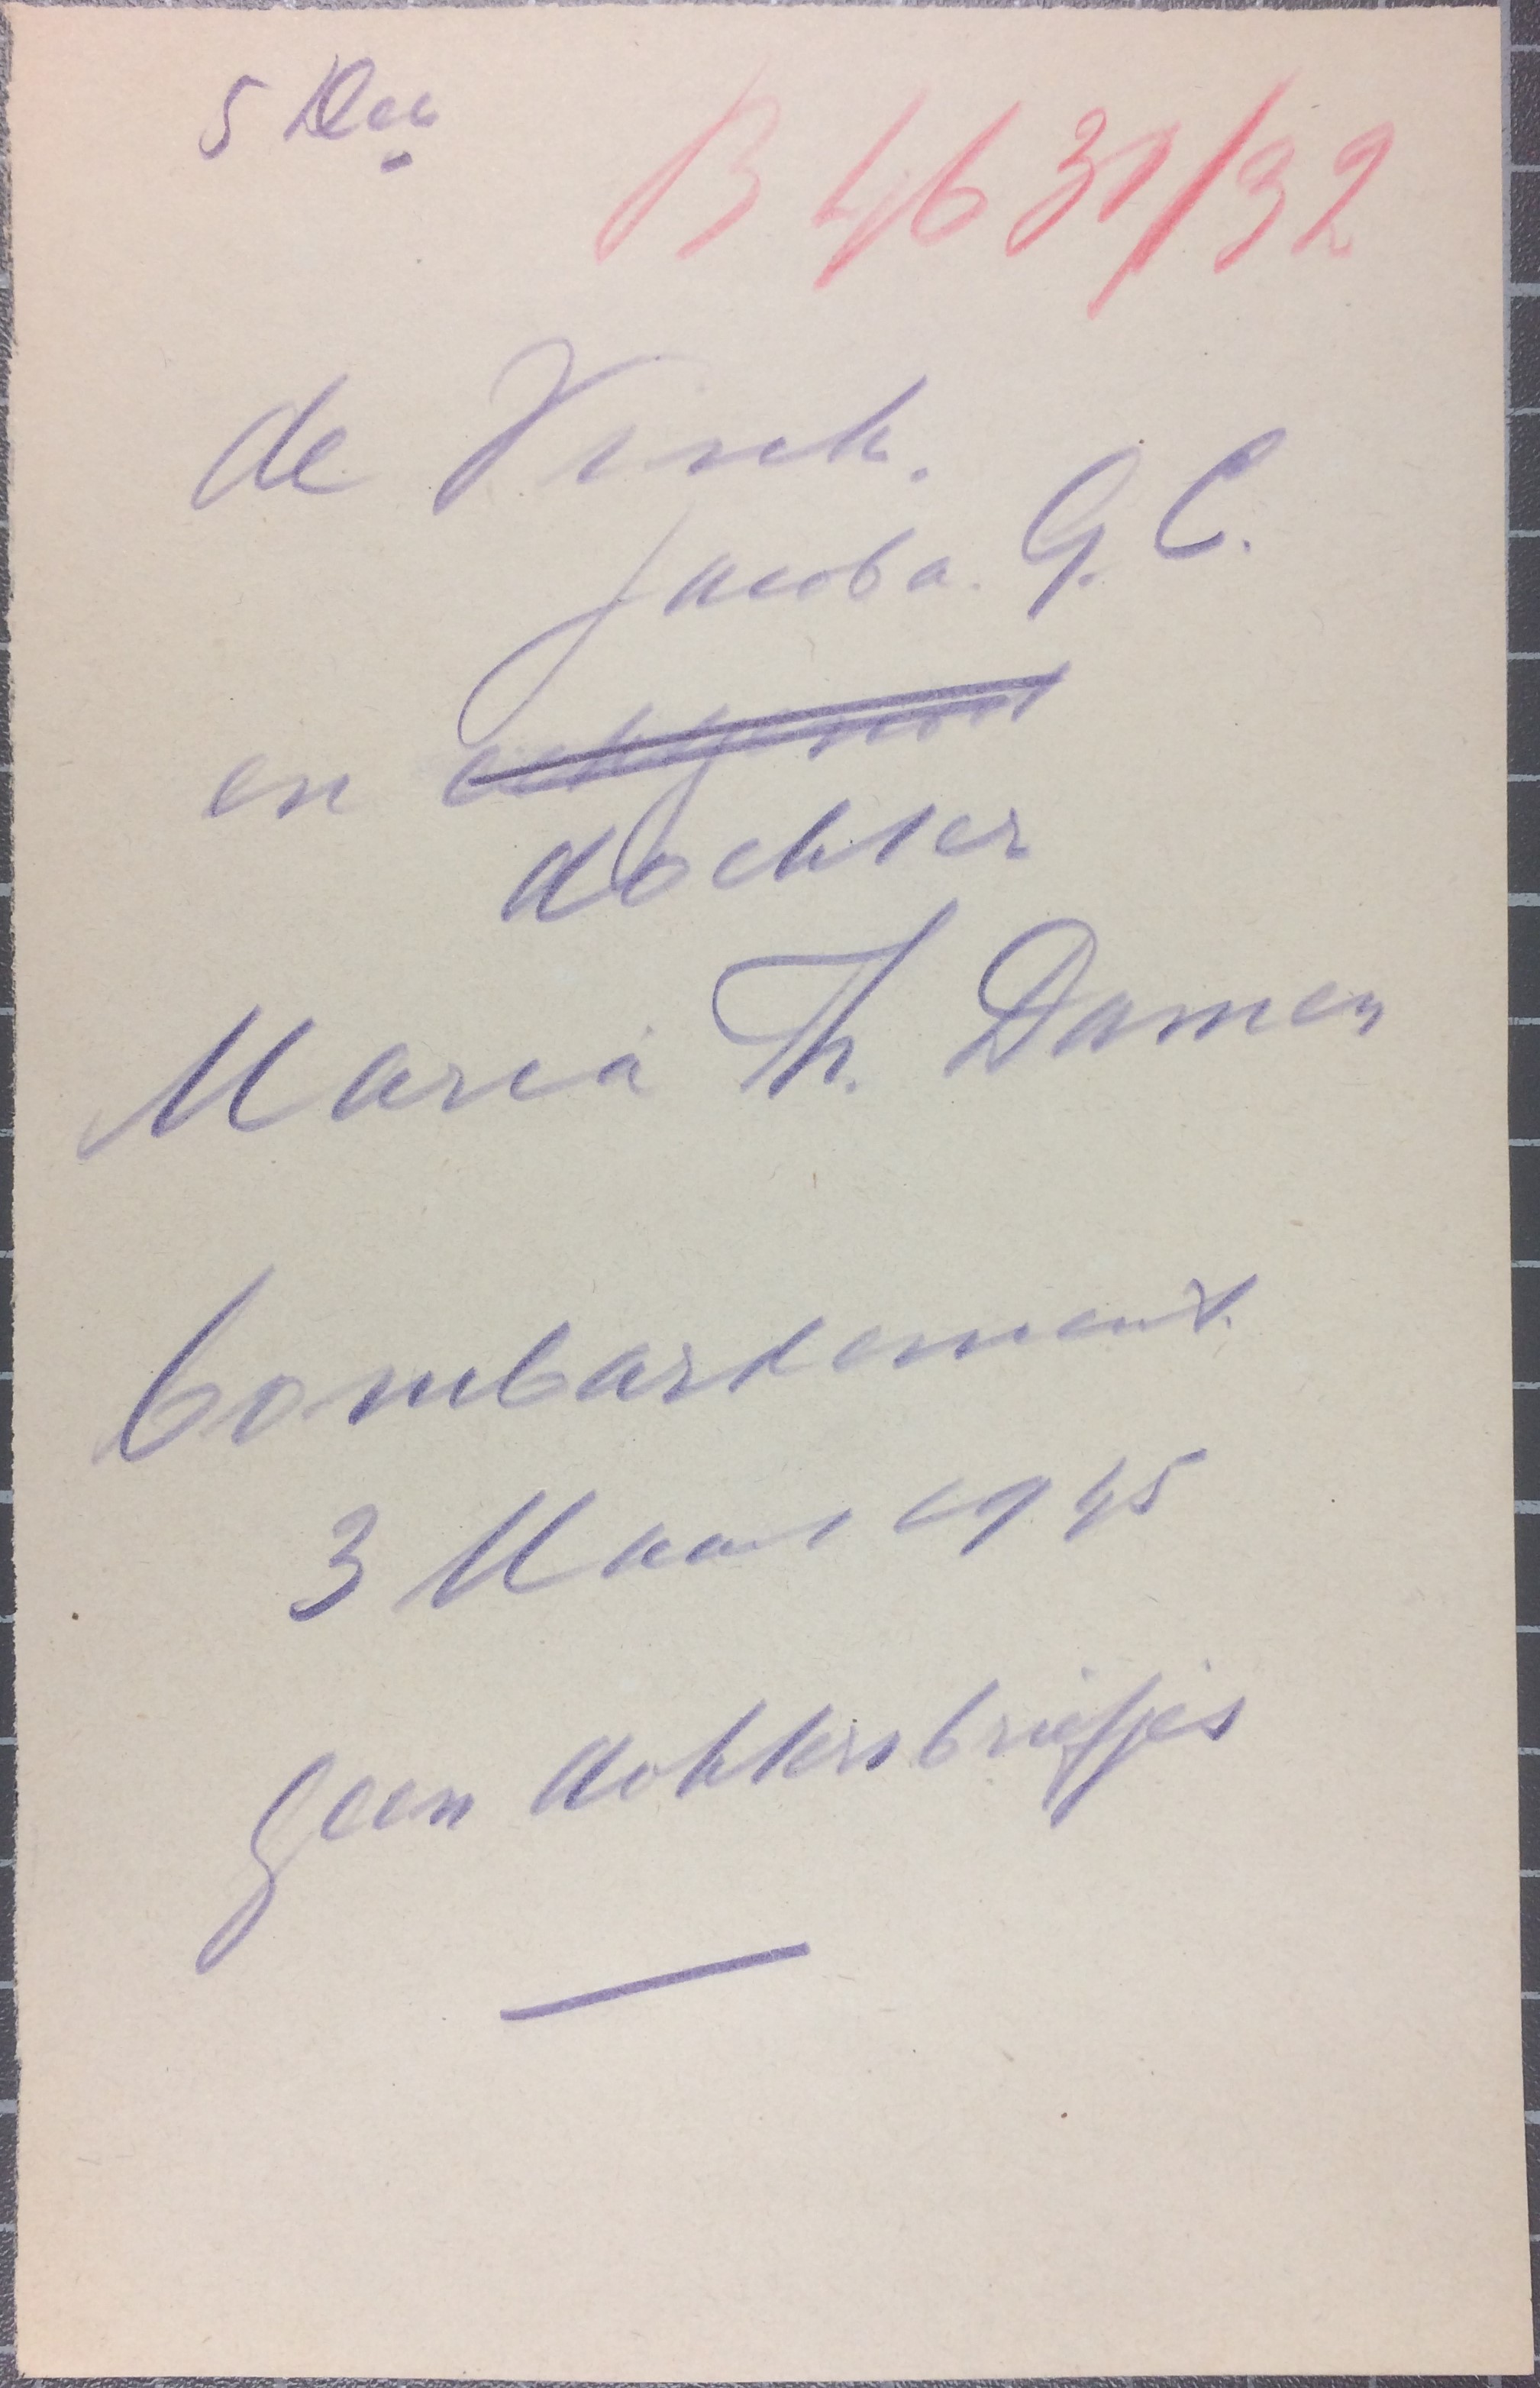 5 Dec
B 4631/32
de Vink.
Jacoba. G. C.
en echtgenoot
dochter
Maria Th. Damen
bombardement.
3 Maart 1945
geen doktersbriefjes